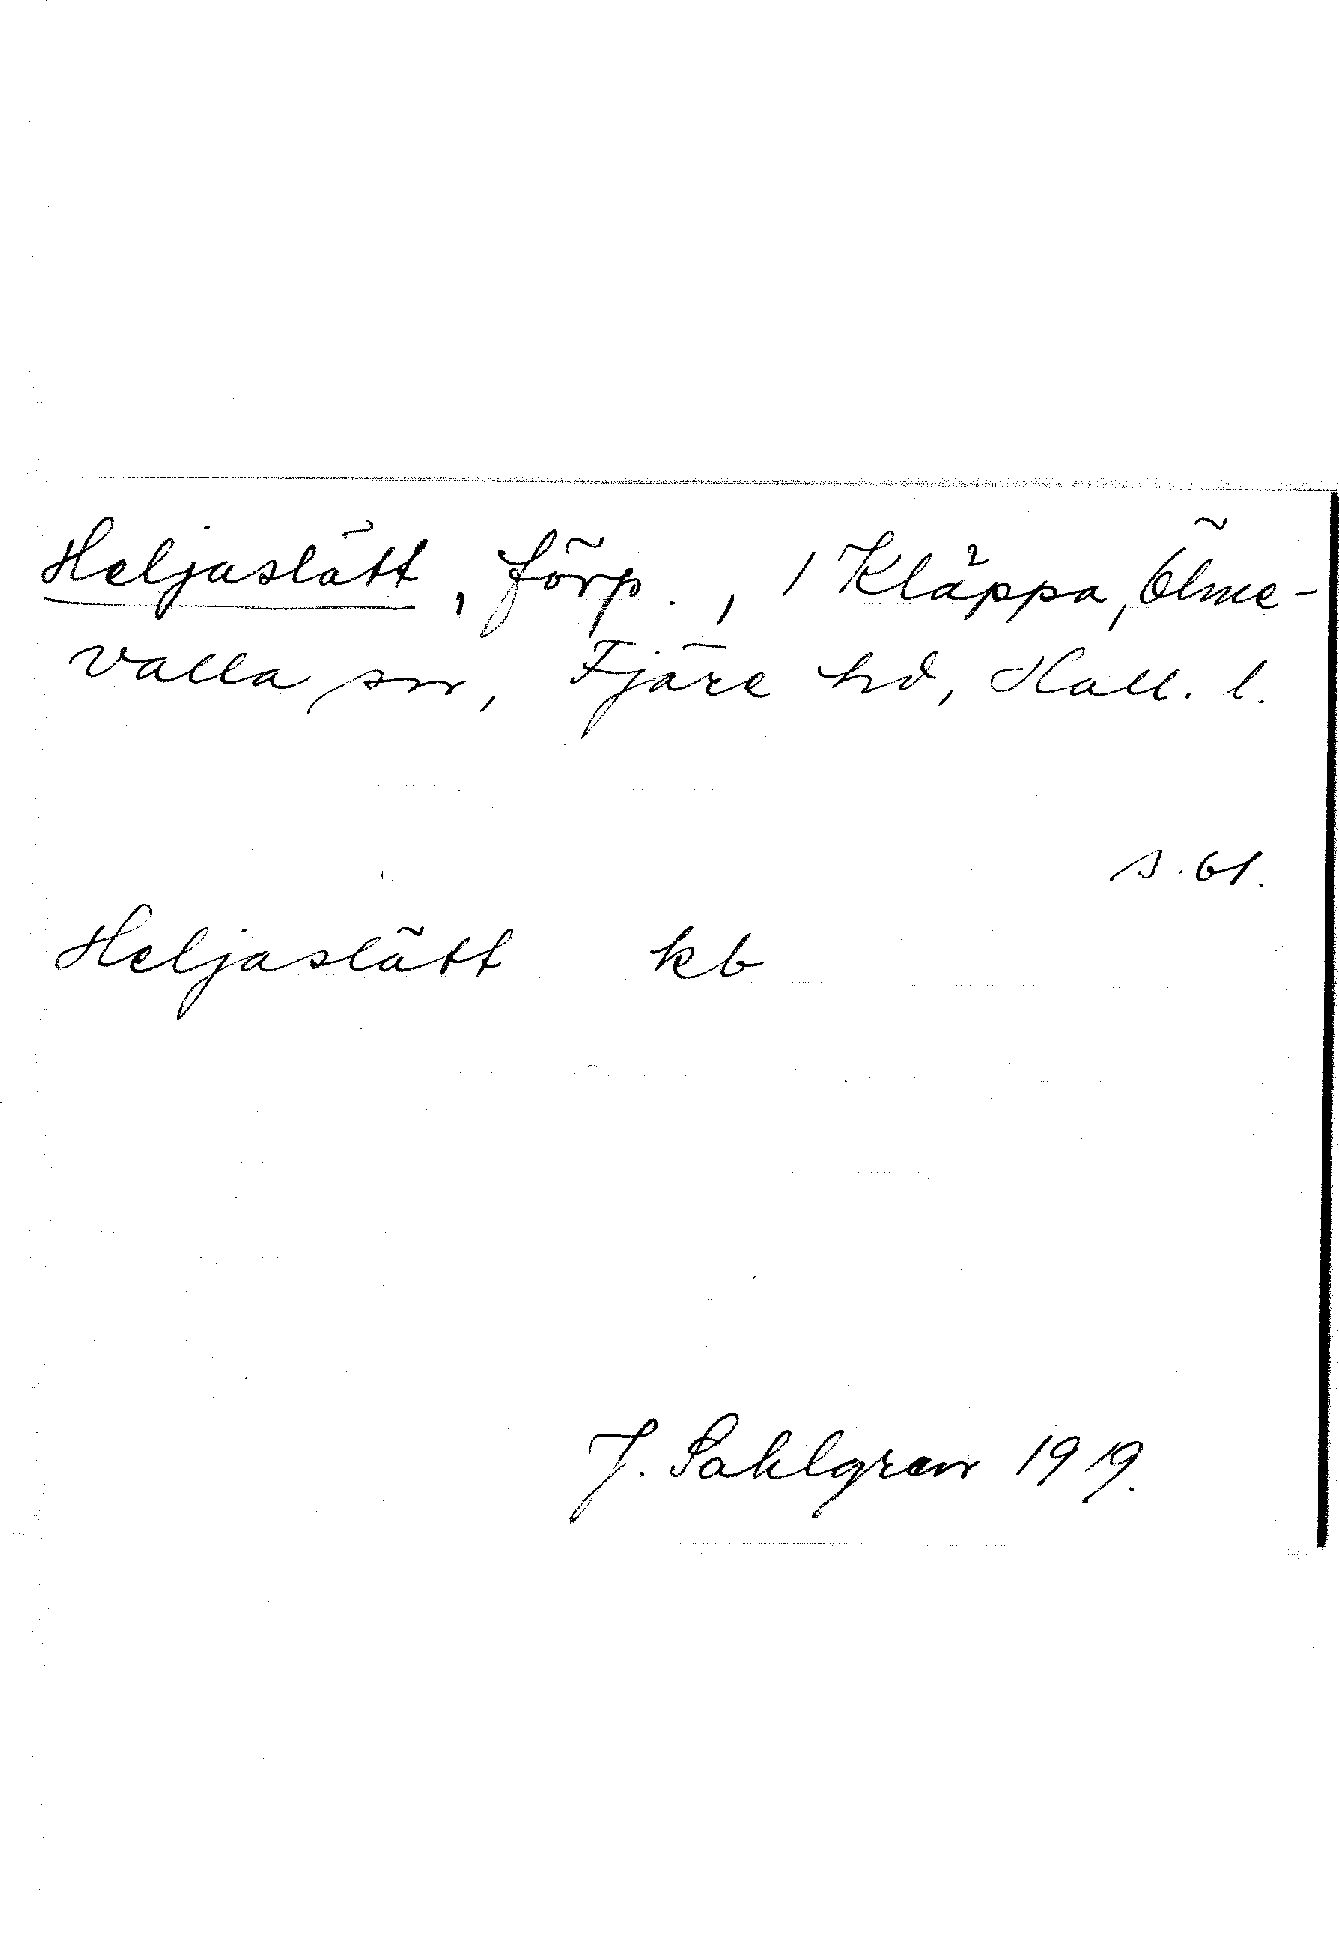 Heljaslätt, förp., 1 Kläppa, Ölme-
valla sn, Fjäre hd, Hall. l.
s. 61.
Heljaslätt kb
J. Sahlgren 1919.